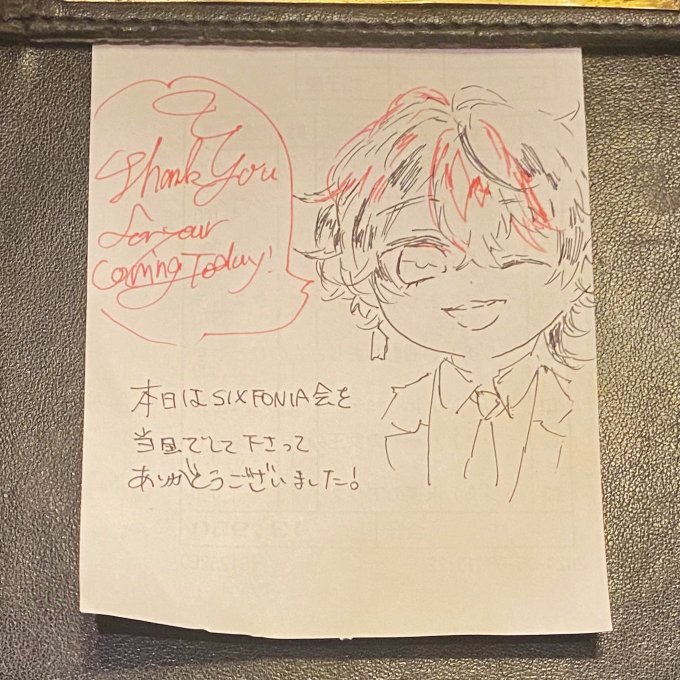 Thank You
for your
Coming Today!
本日はSIXFONIA会を
当店でして下さって
ありがとうございました!